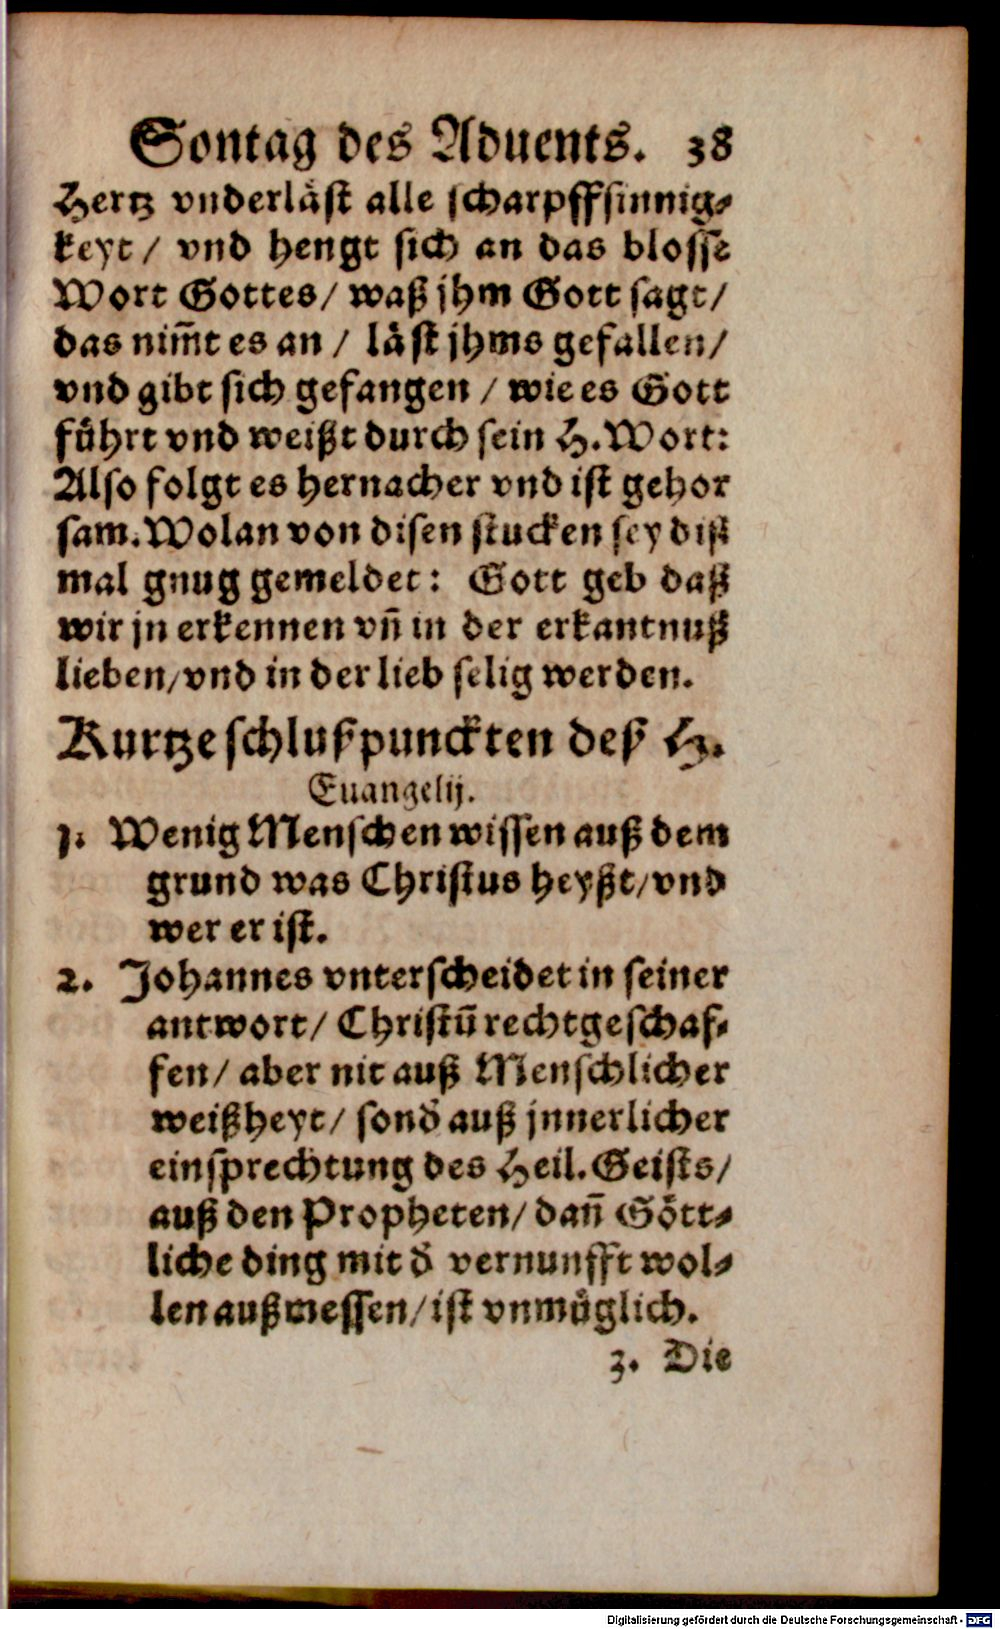 Sontag des Aduents. 38
Hertz vnderläst alle scharpffsinnig⸗
keyt / vnd hengt sich an das blosse
Wort Gottes / waß jhm Gott sagt /
das nim̃t es an / läst jhms gefallen /
vnd gibt sich gefangen / wie es Gott
führt vnd weißt durch sein H. Wort:
Also folgt es hernacher vnd ist gehor
sam. Wolan von disen stucken sey diß
mal gnug gemeldet: Gott geb daß
wir jn erkennen vñ in der erkantnuß
lieben / vnd in der lieb selig werden.
Kurtze schlußpunckten deß H.
Euangelij.
1. Wenig Menschen wissen auß dem
grund was Christus heyßt / vnd
wer er ist.
2. Johannes vnterscheidet in seiner
antwort / Christũ rechtgeschaf⸗
fen / aber nit auß Menschlicher
weißheyt / sond̄ auß jnnerlicher
einsprechtung des Heil. Geists /
auß den Propheten / dañ Gött⸗
liche ding mit d̄ vernunfft wol⸗
len außmessen / ist vnmüglich.
3. Die
Digitalisierung gefördert durch die Deutsche Forschungsgemeinschaft - DFG